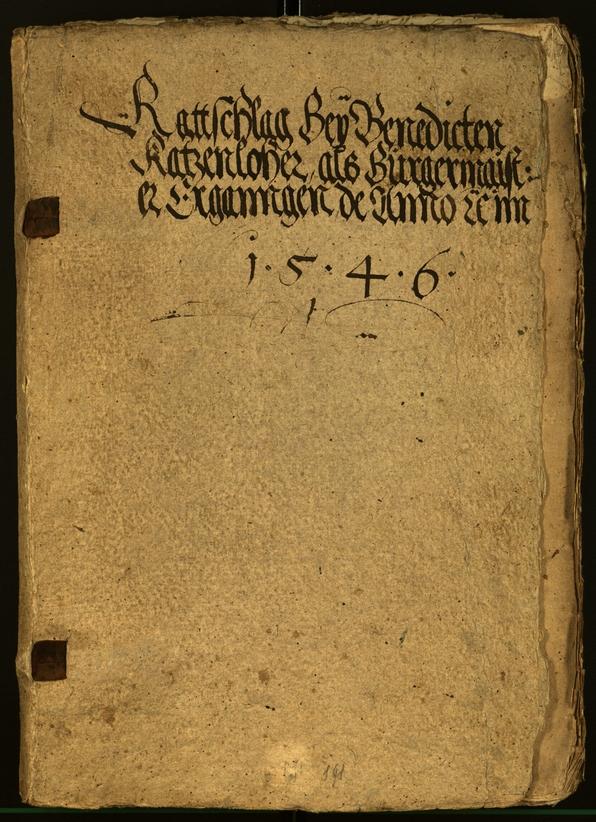 Rattschlag Bey Benedicten
Katzenloher, als Burgermaist:
er Erganngen de Anno ⁊c im
1·5·4·6·
191